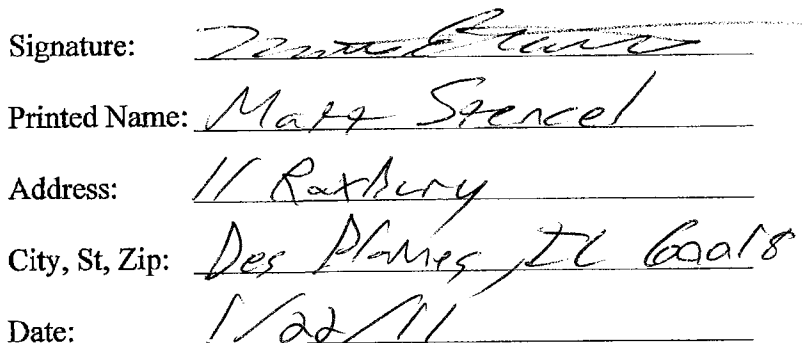 Signature:
Printed Name: Matt Stencel
Address: 11 Roxbury
City, St, Zip: Des Plaines, IL 60018
Date: 1/22/11